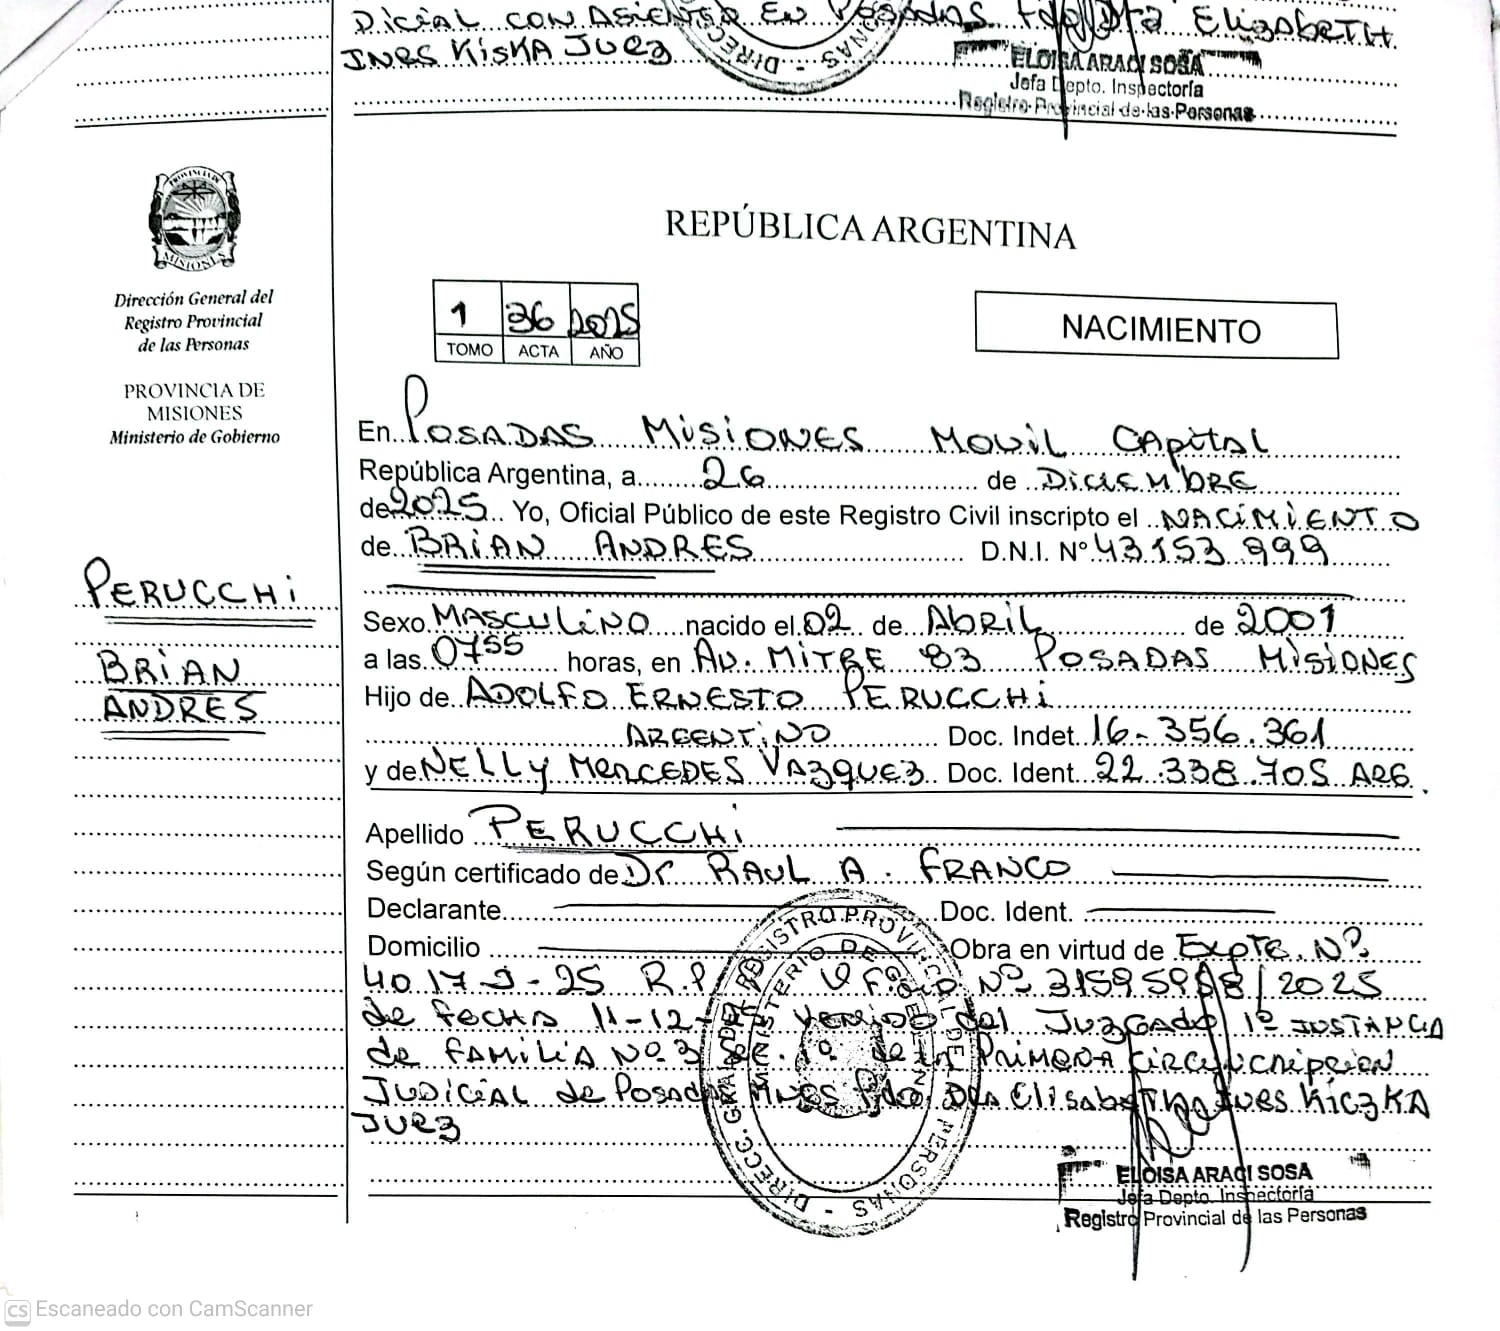 DICIAL CON ASIENTO EN POSADAS ELIZABETH
INES KISKA JUEZ
DIRECC NAS
ELOISA ARACI SOSA
Jefa Depto. Inspectoría
Registro Provincial de las Personas
PROVINCIA DE
MISIONES
Dirección General del
Registro Provincial
de las Personas
PROVINCIA DE
MISIONES
Ministerio de Gobierno
REPÚBLICA ARGENTINA
1 36 2025
TOMO ACTA AÑO
NACIMIENTO
En POSADAS MISIONES MOVIL CAPITAL
República Argentina, a 26 de DICIEMBRE
de 2025 Yo, Oficial Público de este Registro Civil inscripto el NACIMIENTO
de BRIAN ANDRES D.N.I. Nº 43.153.999
PERUCCHI
BRIAN
ANDRES
Sexo MASCULINO nacido el 02 de Abril de 2001
a las 0755 horas, en AV. MITRE 83 POSADAS MISIONES
Hijo de ADOLFO ERNESTO PERUCCHI
ARGENTINO Doc. Indet. 16-356.361
y de NELLY MERCEDES VAZQUEZ Doc. Ident. 22.338.705 ARG.
Apellido PERUCCHI
Según certificado de Dr RAUL A. FRANCO
Declarante Doc. Ident.
Domicilio Obra en virtud de Expte. Nº
4017-J-25 R.P. Nº 2025
de fecha 11-12- venido del JUZGADO 1º INSTANCIA
de FAMILIA Nº 3 de la PRIMERA CIRCUNCRIPCION
JUDICIAL de POSADAS DRA ELISABETH INES KICZKA
JUEZ
DIRECC. GRAL. DEL REGISTRO PROVINCIAL DE LAS PERSONAS
MINISTERIO DE GOBIERNO
ELOISA ARACI SOSA
Jefa Depto. Inspectoría
Registro Provincial de las Personas
CS Escaneado con CamScanner